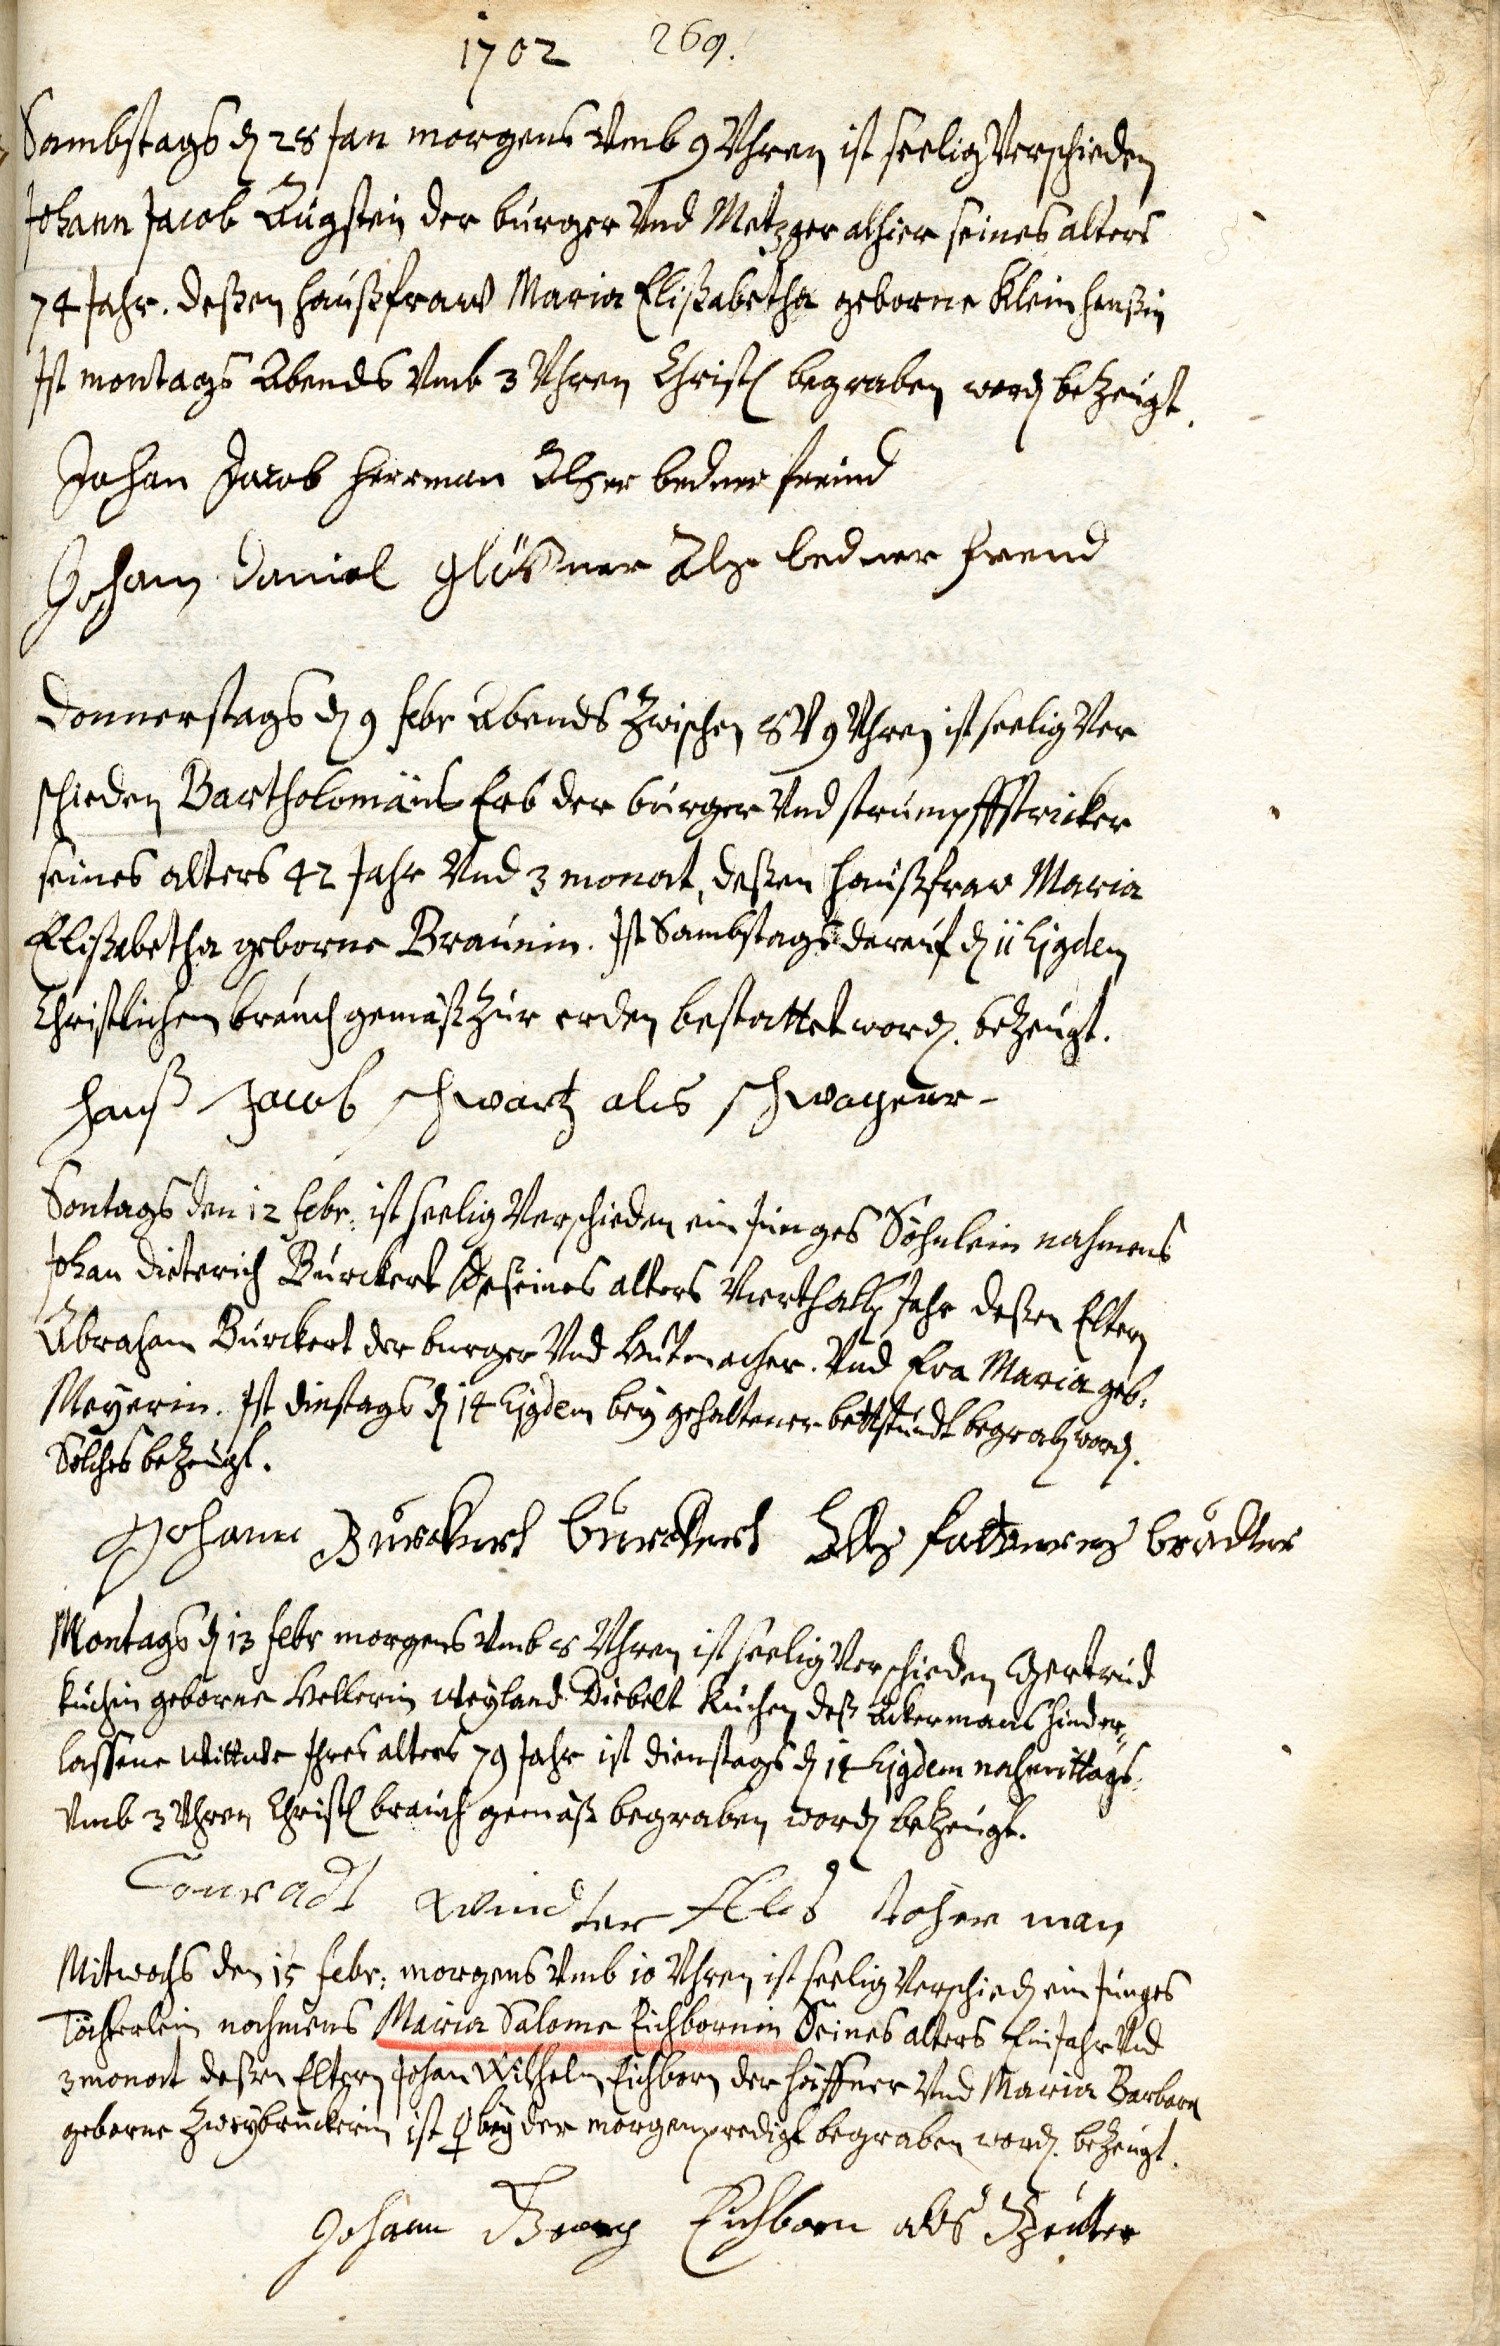 1702 269.
Sambstags dē 28 Jan morgens vmb 9 Vhren ist seelig Verschieden
Johann Jacob Augstein der burger Vnd Metzger alhier seines alters
74 Jahr. deßen haußfraw Maria Elisabetha geborne Kleinhenßin
Ist montags Abends vmb 3 Vhren Christl begraben word bezeugt.
Johan Jacob Herrman Alß er bedner freind
Johann Daniel Glöckner Alß er bedner frend
Donnerstags dē 9 Febr Abends Zwischen 8 V 9 Vhren ist seelig Ver
schieden Bartholomäus Erb der burger Vnd strumpffstricker
seines alters 42 Jahr Vnd 3 monat, deßen haußfraw Maria
Elisabetha geborne Braunin. Ist Sambstags darauf dē 11 Ejgdem
Christlichem brauch gemäß Zur erden bestattet word. bezeugt.
Hanß Jacob schwartz als schwager -
Sontags den 12 Febr: ist seelig Verschieden ein Junges Söhnlein nahmens
Johan Dieterich Burckert seines alters Vierthalb Jahr deßen Eltern
Abraham Burckert der burger Vnd Hutmacher. Vnd Eva Maria geb:
Meyerin. Ist dinstags dē 14 Ejgdem bey gehaltener bettstundt begrab word.
Solches bezeugt.
Johann Burckert Alß fatters bruder
Montags dē 13 Febr morgens vmb 8 Vhren ist seelig Verschieden Gertrud
Kuchin geborne Hellerin weyland Diebelt Kuchen deß Ackermans hinder=
lassene Wittwe Ihres alters 79 Jahr ist dienstags dē 14 Ejgdem nachmittags
vmb 3 Vhren Christl brauch gemäß begraben word bezeugt.
Conradt Windter Als dochter man
Mitwochs den 15 Febr: morgens vmb 10 Vhren ist seelig Verschied ein Junges
Töchterlein nahmens Maria Salome Eichbornin Seines alters Ein Jahr Vnd
3 monat deßen Eltern Johan Wilhelm Eichborn der häffner Vnd Maria Barbara
geborne Zweybruckerin ist ♀ bey der morgenpredigt begraben word. bezeugt.
Johann Georg Eichborn als